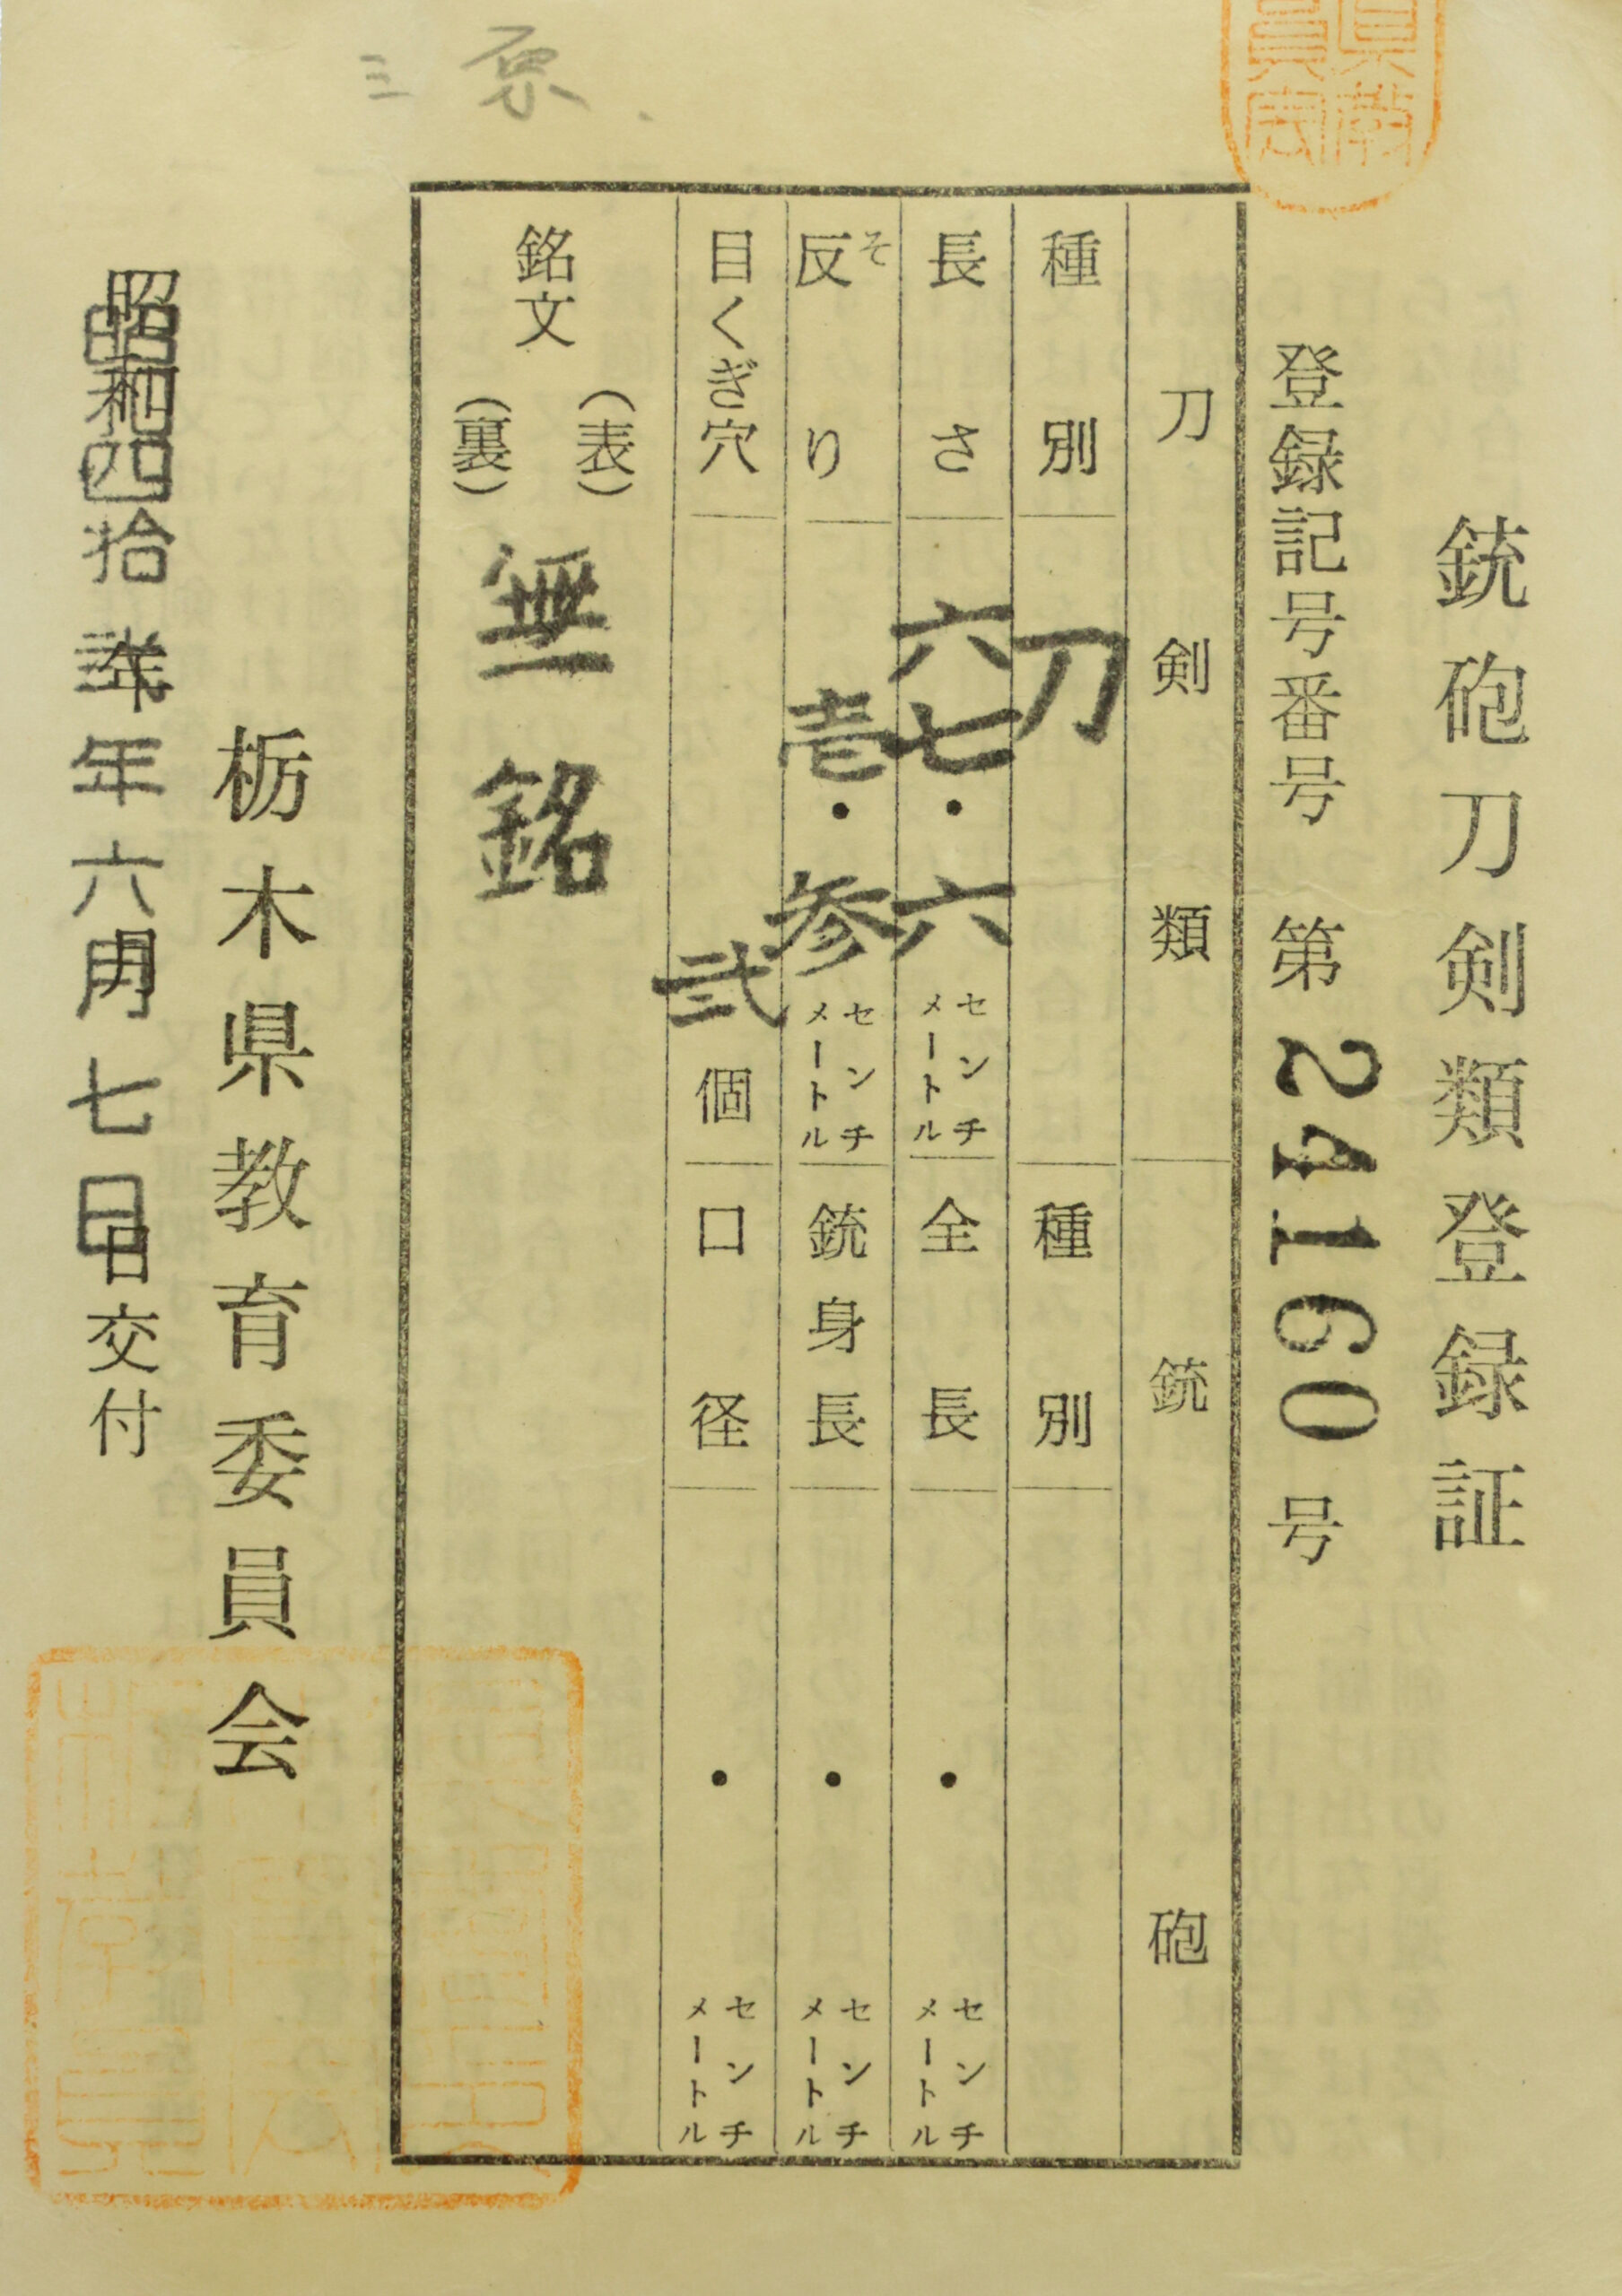 銃砲刀剣類登録証
登録記号番号 第 24160 号
刀剣類 銃砲
種別 刀 種別
長さ 六七・六 センチメートル 全長 ・ センチメートル
反り そ 壱・参 センチメートル 銃身長 ・ センチメートル
目くぎ穴 弐 個 口径 ・ センチメートル
銘文 (表) 無銘
(裏)
栃木県教育委員会
昭和四拾 年六月七日交付
三原